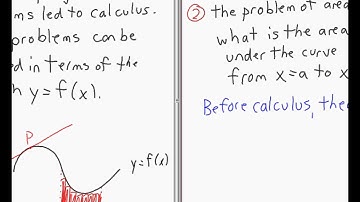 ms led to calculus.
problems can be
ed in terms of the
h y=f(x).
P
y=f(x)
② the problem of area
what is the area
under the curve
from x=a to x
Before calculus, the